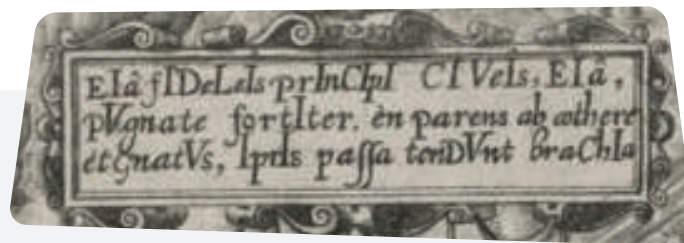 EIâ fIDeLeIs prInCIpI CIVeIs, EIâ,
pVgnate fortIter. èn parens ab æthere
et gnatVs, IpsIs passa tenDVnt braChIa